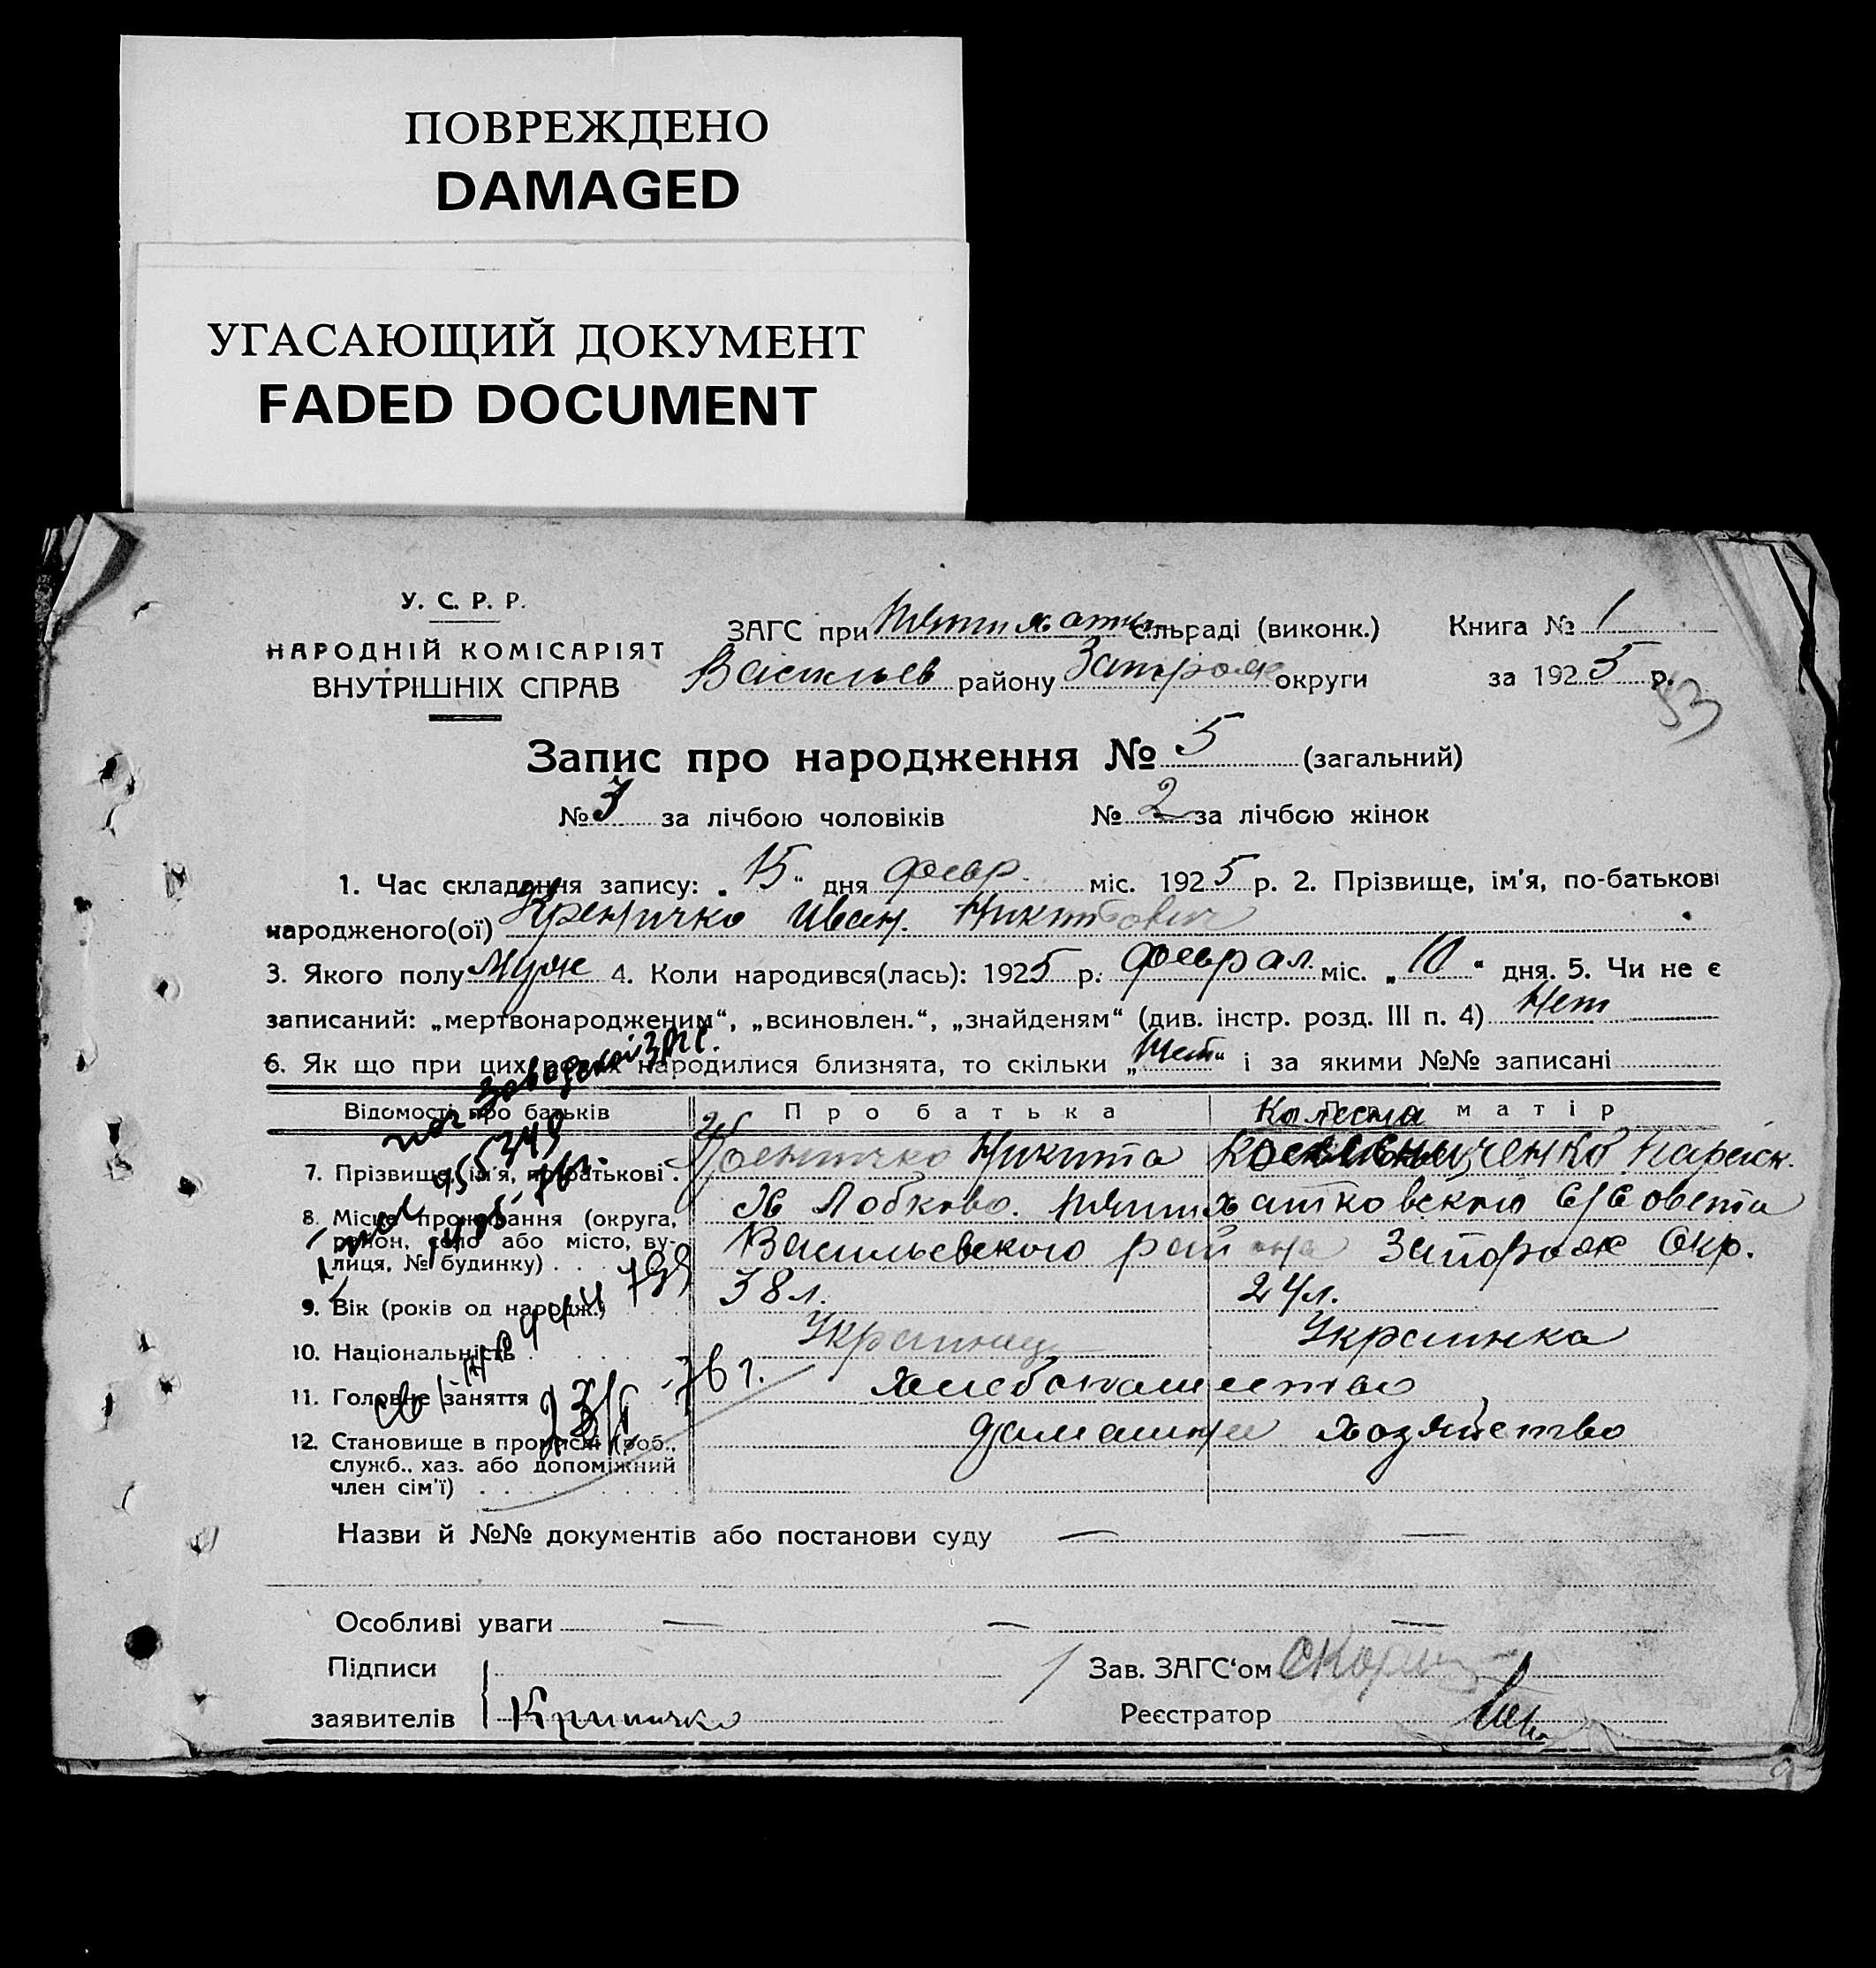 ПОВРЕЖДЕНО
DAMAGED
УГАСАЮЩИЙ ДОКУМЕНТ
FADED DOCUMENT
У. С. Р. Р.
НАРОДНІЙ КОМІСАРІЯТ
ВНУТРІШНІХ СПРАВ
ЗАГС при Пятихатк Сільраді (виконк.) Книга № 1
Васильев району Запорож округи за 1925 р.
53
Запис про народження № 5 (загальний)
№ 3 за лічбою чоловіків № 2 за лічбою жінок
1. Час складання запису: „15“ дня февр. міс. 1925 р. 2. Прізвище, ім'я, по-батькові
народженого(ої) Иван Никитович
3. Якого полу Муж 4. Коли народився(лась): 1925 р. феврал. міс. „10“ дня. 5. Чи не є
записаний: „мертвонародженим“, „всиновлен.“, „знайденям“ (див. інстр. розд. III п. 4) Нет
6. Як що при цих родах народилися близнята, то скільки „Нет“ і за якими №№ записані
Відомості про батьків Про батька Про матір
Колесни
7. Прізвище, ім'я, по-батькові Никита ченко Параск.
8. Місце проживання (округа, район, село або місто, вулиця, № будинку) Х Лобково. Пятихатковского с/совета
Васильевского района Запорож Окр.
9. Вік (років од народж.) 38 л. 24 л.
10. Національність Украинец Украинка
11. Головне заняття Хлебопашество
12. Становище в промислі (роб., служб., хаз. або допоміжний член сім'ї) домашнее хозяйство
Назви й №№ документів або постанови суду — —
Особливі уваги — — —
Підписи Зав. ЗАГС'ом
заявителів Реєстратор